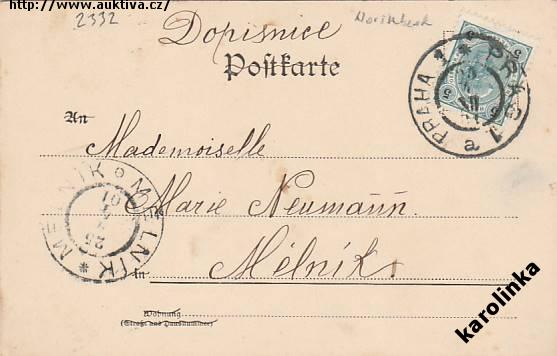 https://www.auktiva.cz/
2332
Dopisnice
Postkarte
PRAHA 1 * PRAG 1
a
5
An
Mademoiselle
Marie Neumann
MELNIK * MĚLNIK
25
01
in
Mělník
Wohnung
(Straße und Hausnummer)
karolinka